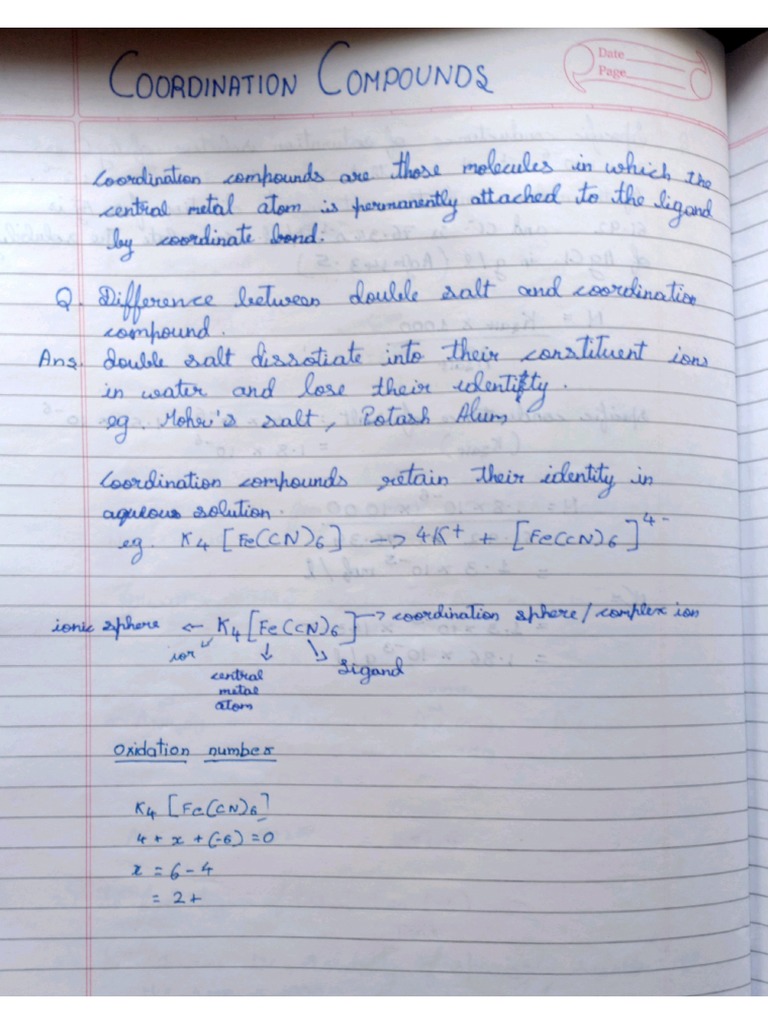 COORDINATION COMPOUNDS
Date
Page
Coordination compounds are those molecules in which the
central metal atom is permanently attached to the ligand
by coordinate bond.
Q. Difference between double salt and coordination
compound.
Ans. double salt dissotiate into their constituent ions
in water and lose their identity.
eg. Mohr's salt, Potash Alum
Coordination compounds retain their identity in
aqueous solution.
eg. K₄ [Fe(CN)₆] → 4K⁺ + [Fe(CN)₆]⁴⁻
ionic sphere ← K₄[Fe(CN)₆] → coordination sphere/complex ion
ion ↙ ↓ ↘ ligand
central
metal
atom
oxidation number
K₄ [Fe(CN)₆]
4 + x + (-6) = 0
x = 6 - 4
= 2+